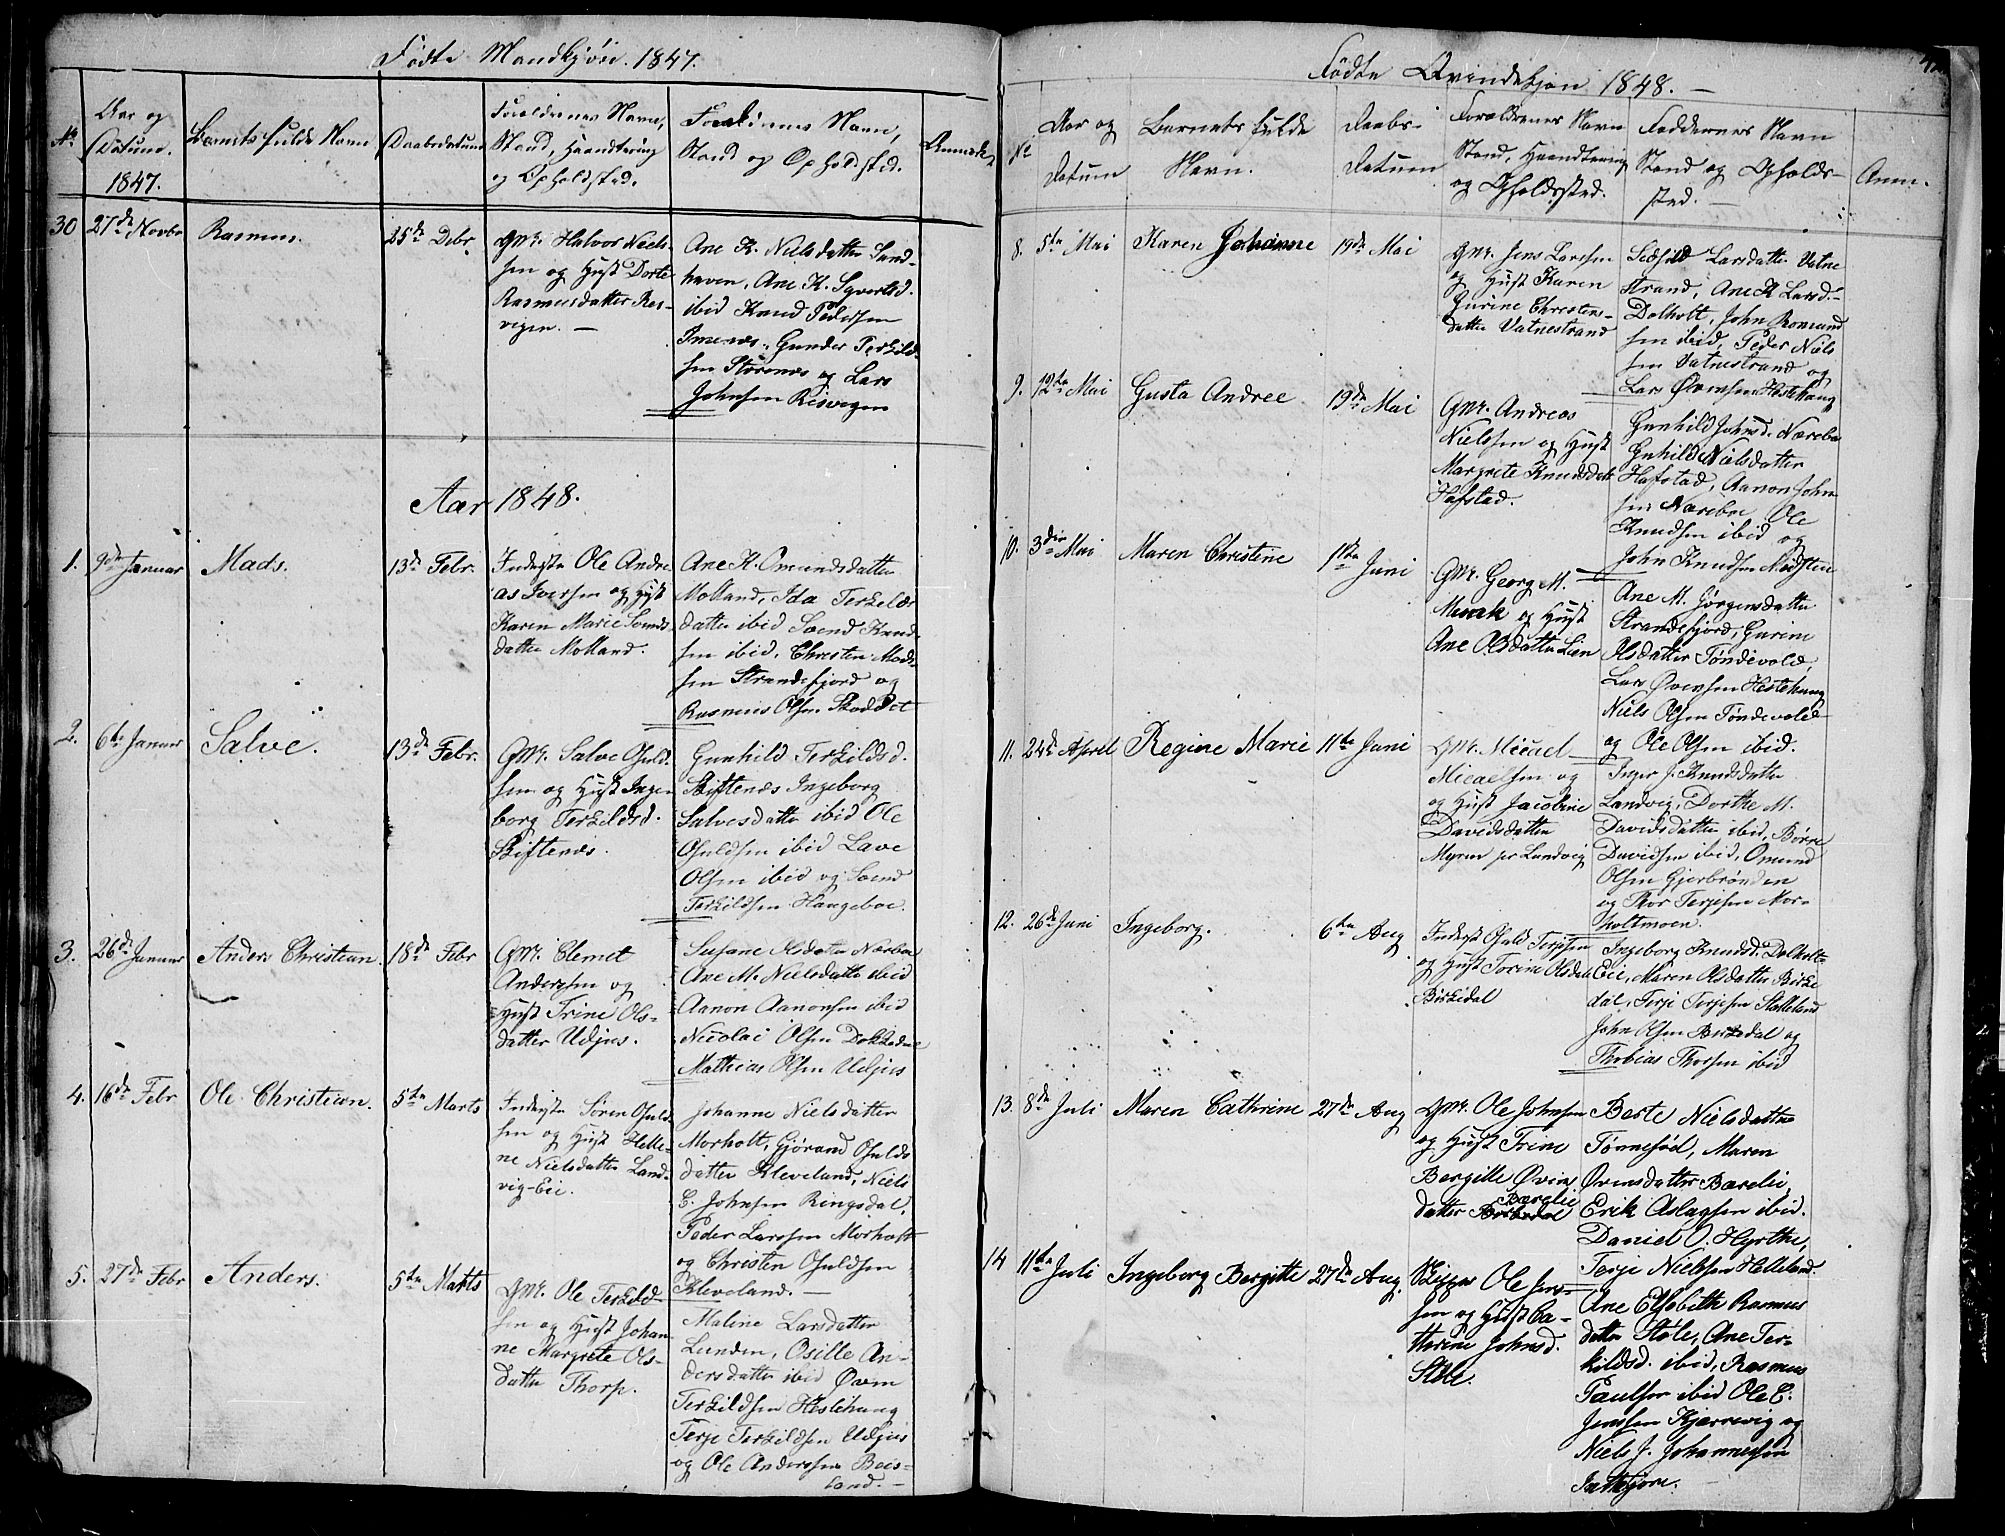 Födte Mandkjön. 1847.
No
Aar og
Datum.
1847.
Barnets fulde Navn
Daabsdatum
Foreldrenes Navne,
Stand, Haandtering
og Opholdsted.
Faddernes Navne,
Stand og Opholdsted.
Anmerk.
30
27de Novbr
Rasmus.
25de Debr.
Gmd. Halvor Niels-
sen og Hust Dorte
Rasmusdatter Res-
vigen. —
Ane K. Nielsdatter Sand-
haven, Ane K. Syvertsd.
ibid Knud Pedersen
Imenes, Gunder Terkild
sen Storenes og Lars
Johnsen Resvigen
Aar 1848.
1.
9de Januar
Mads.
13de Febr.
Inderste Ole Andre
as Iversen og Hust
Karen Marie Svends
datter Molland.
Ane K. Omundsdatter
Molland, Ida Terkilds
datter ibid Svend Knud-
sen ibid, Christen Mads
sen Strandefjord og
Rasmus Olsen Skoddet
2.
6te Januar
Salve.
13de Febr.
Gmd. Salve Osuld-
sen og Hust Inge-
borg Terkildsd.
Skiftenes.
Gunhild Terkildsd.
Skiftenes Ingeborg
Salvesdatter ibid Ole
Osuldsen ibid Lave
Olsen ibid og Svend
Terkildsen Haugeboe.
3.
26de Januar
Anders Christian.
18de Febr
Gmd. Clemet
Anderssen og
Hust Trine Ols-
datter Udjus.
Susane Olsdatter Nærboe
Ane M. Nielsdatter ibid
Aanon Aanonsen ibid
Nicolai Olsen Dokkedal
Mathias Olsen Udjus
4.
16de Febr
Ole Christian.
5te Marts
Inderste Sören Osuld-
sen og Hust Helle-
ne Nielsdatter Land-
vig-Eie.
Johanne Nielsdatter
Morholt, Gjörand Osulds
datter Kleveland, Niels
C. Johnsen Ringsdal,
Peder Larssen Morholt
og Christen Osuldsen
Kleveland. —
5.
27de Febr
Anders.
5te Marts
Gmd. Ole Terkild-
sen og Hust Johan-
ne Margrete Ols-
datter Thorp.
Maline Larsdatter
Lunden, Osille An-
dersdatter ibid Öven
Terkildsen Hestehaug
Terje Terkildsen Udjus
og Ole Anderssen Beis-
land. —
Födte Qvindekjön 1848. —
No
Aar og
Datum
Barnets fulde
Navn.
Daabs-
Datum
Foreldrenes Navn
Stand, Haandtering
og Opholdsted.
Faddernes Navn
Stand og Opholds-
sted. —
Anm.
8.
5te Mai
Karen Johanne
19de Mai
Gmd. Jens Larssen
og Hust Karen
Gurine Christens-
datter Vatnestrand
Larsdatter Vatne
strand, Ane K Larsd.
Dolholt, John Romund
sen ibid, Peder Niels
sen Vatnestrand og
Lars Övensen Hestehaug
9.
12te Mai
Gusta Andree
19de Mai
Gmd. Andreas
Nielssen og Hust
Margrete Knudsdatt
Hafstad.
Gunhild Johnsd. Næreboe
Gnhild Nielsdatter
Hafstad, Aanon John
sen Næreboe Ole
Knudsen ibid og
John Knudsen Modsten
10.
3die Mai
Maren Christine
1ste Juni
Gmd. Georg M.
Munk og Hust
Ane Olsdatter Lien
Ane M. Jörgensdatter
Strandefjord, Gurine
Olsdatter Töndevold,
Lars Övensen Hestehaug
Niels Olsen Töndevold
og Ole Olsen ibid.
11.
24de April
Regine Marie
11te Juni
Gmd. Micael
Micaelsen og
og Hust Jacobine
Davidsdatter
Myren pr Landvig
Inger J. Knudsdatter
Landvig, Dorthe M.
Davidsdatter ibid, Börre
Davidsen ibid, Omund
Olsen Gjerbrönden
og Thor Terjesen Mor-
holtmoen.
12.
26de Juni
Ingeborg.
6te Aug
Inderst Osuld Terjesen
og Hust Torine Olsdat
Birkedal
Ingeborg Knudsd. Dolholt-
Eie, Maren Olsdatter Birke
dal, Terje Terjesen Stalleland
John Olsen Birkedal og
Thobias Thorsen ibid
13.
8de Juli
Maren Cathrine
27de Aug
Gmd. Ole Johnsen
og Hust Trine
Bergitte Övens
datter Birkedal Barelie
Berte Nielsdatter
Tönnesöl, Maren
Övensdatter Barelie
Erik Aslagsen ibid.
Daniel O. Hyrthe,
Terje Nielssen Helleland.
14
11te Juli
Ingeborg Bergitte
27de Aug.
Skipper Ole Jens-
sen og Hust Ca-
thrine Johnsd.
Støle.
Ane Elsebeth Rasmus
datter Støle, Ane Ter-
kildsd. ibid, Rasmus
Paulsen ibid Ole C.
Jenssen Kjerrevig og
Niels J. Johannessen